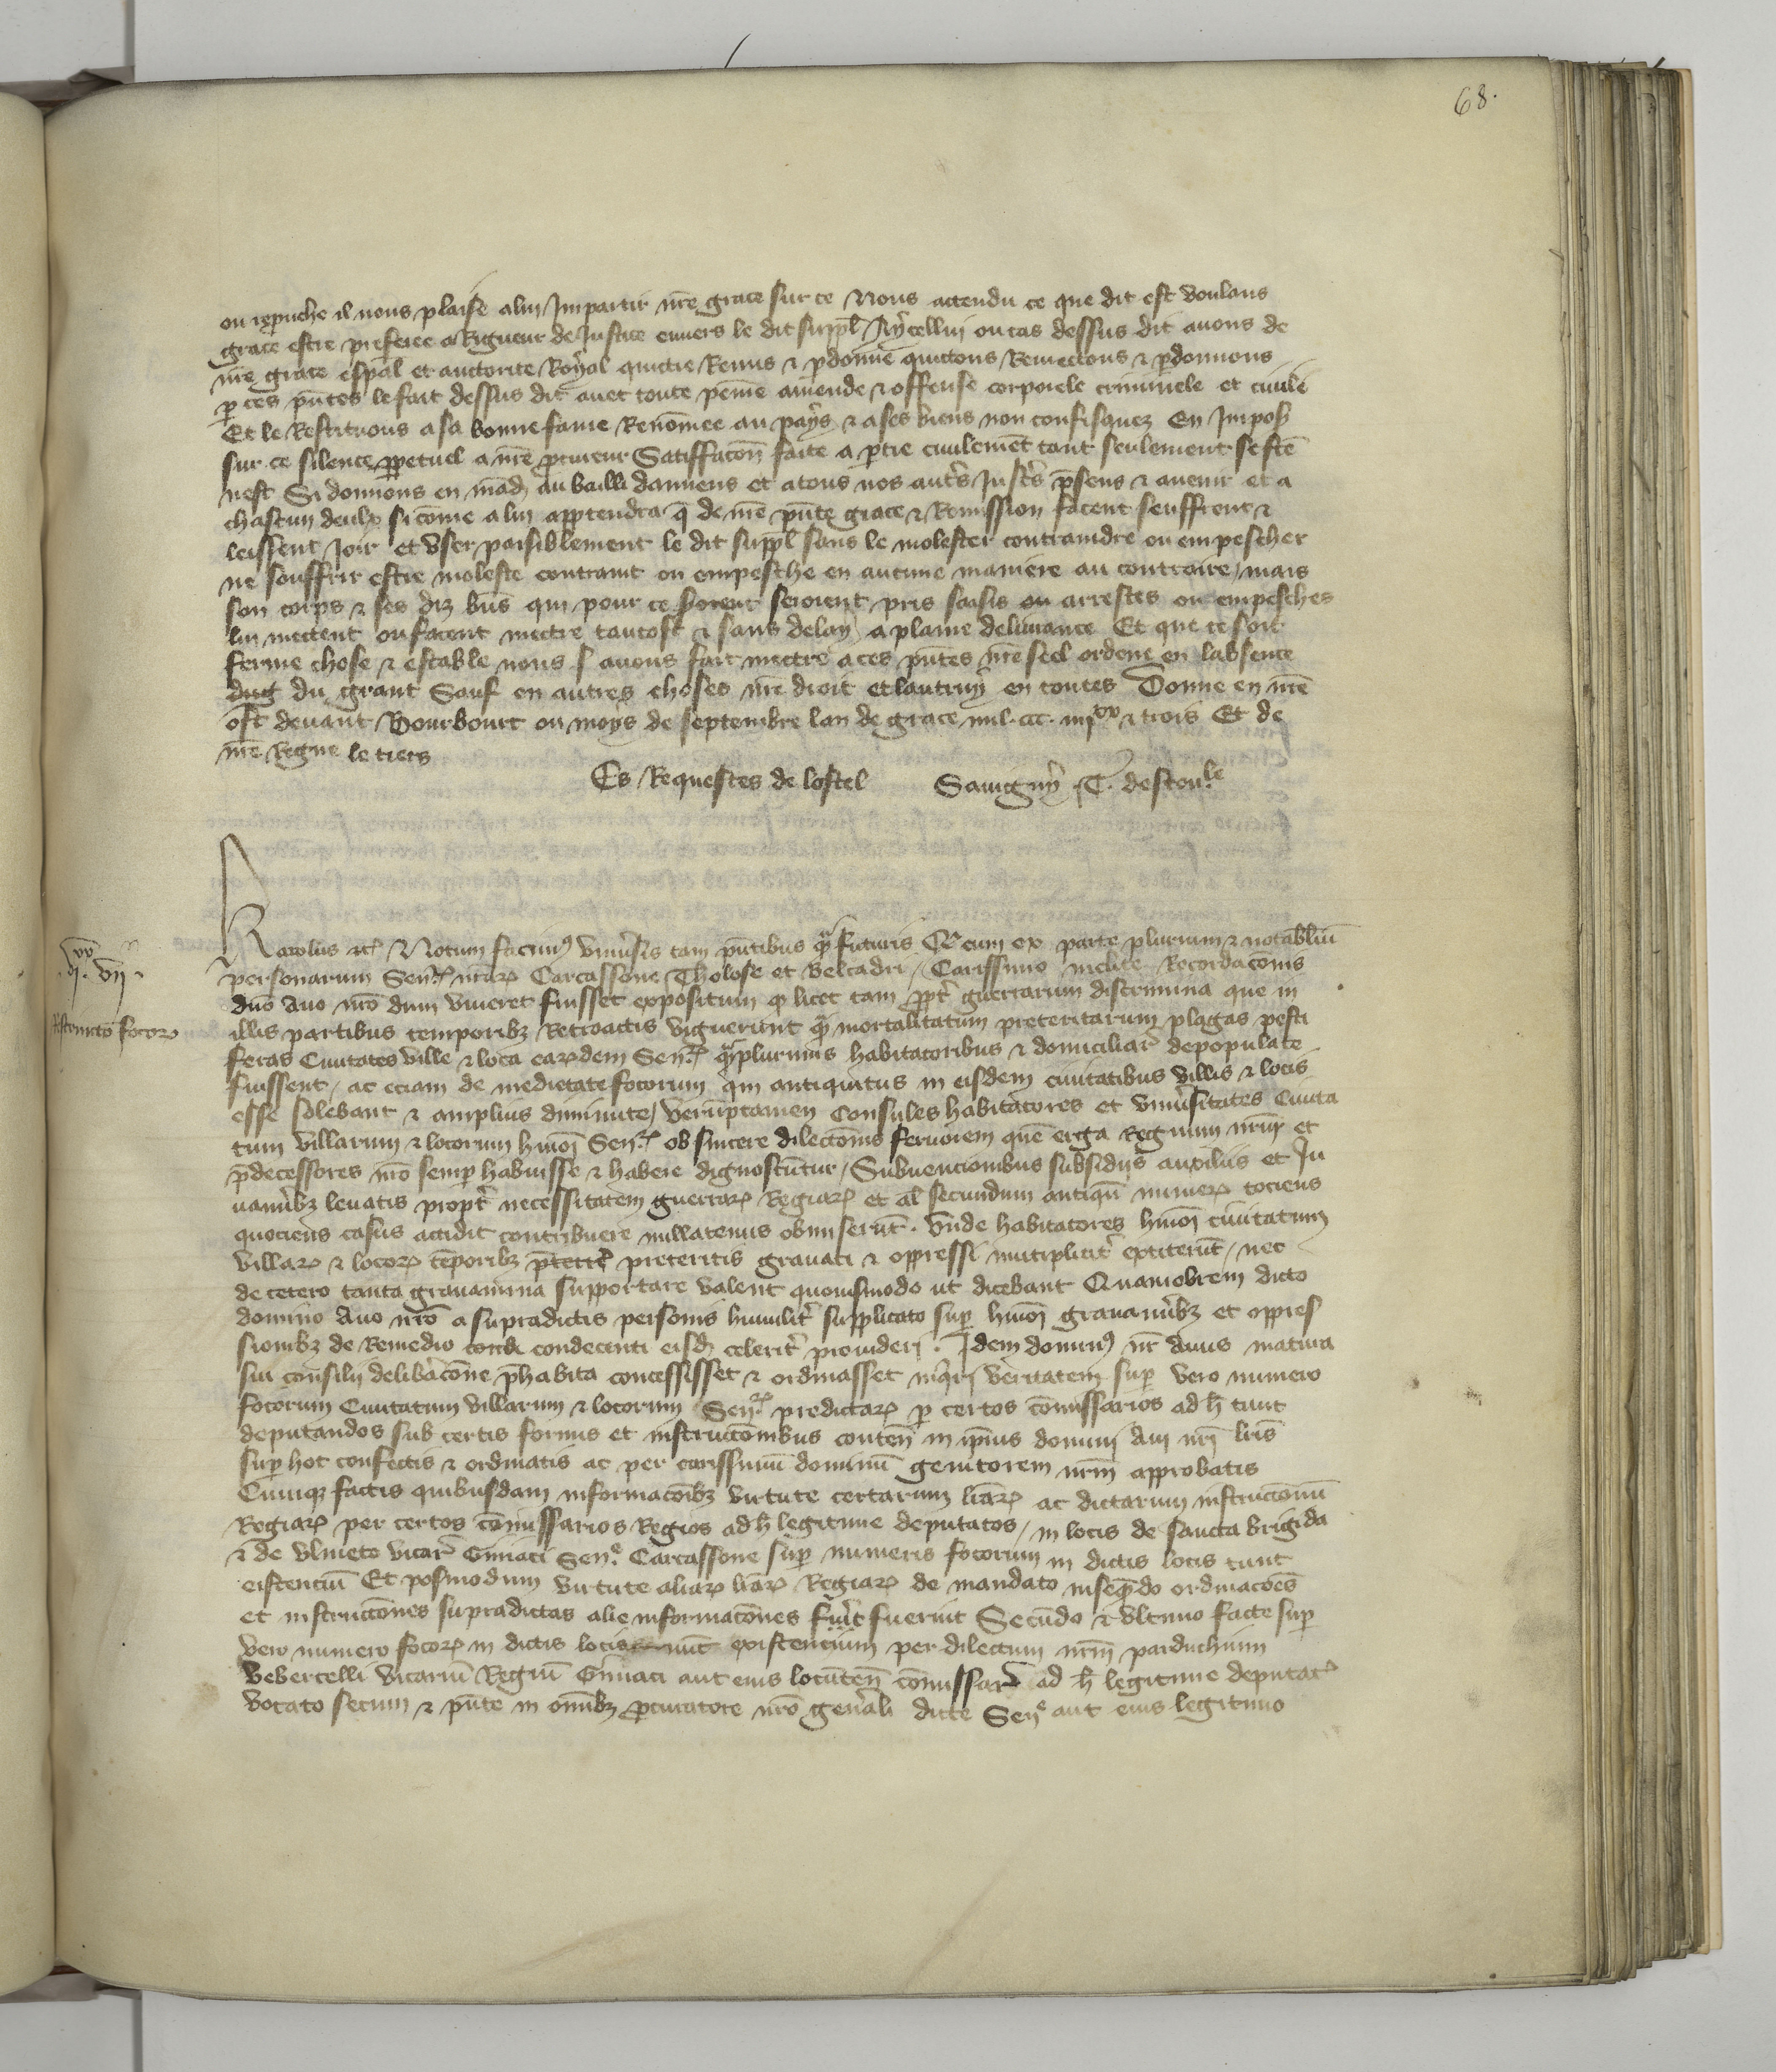 68.
ou repruche il nous plaise a lui Impartir nre grace sur ce Nous attendu ce que dit est voulans
grace estre preferee a Rigueur de Justice envers le dit suppl Aycellui ou cas dessus dit avons de
nre grace espal et auctorite Royal quicte Remis & pdonne quictons Remectons & pdonnons
p ces pntes le fait dessus dit avec toute peine amende & offense corporele criminele et civile
Et le Restituons a sa bonne fame Renomee au pays & a ses biens non confisquez En Impos
sur ce silence ppetuel a nre procureur Satiffacon faite a ptie civilement tant seulement se fte
nest Si donnons en mand au bailli damiens et a tous nos autrs Justs psens & avenir et a
chascun deulx si come a lui apptendra q de nre pnte grace & Remission facent seuffrent &
leissent Joir et user paisiblement le dit suppl sans le molester contraindre ou empescher
ne souffrir estre moleste contraint ou empesche en aucune maniere au contraire / mais
son corps & ses diz bns qui pour ce seroient pris saisis ou arrestes ou empesches
lui mectent ou facent mectre tantost & sans delay a plaine delivrance Et que ce soit
ferme chose & estable nous avons fait mectre a ces pntes nre seel ordene en labsence
du grant Sauf en autres choses nre droit et lautruy en toutes Donne en nre
ost devant Bourbourc ou moys de septembre lan de grace mil.ccc.iiijxx & trois Et de
nre Regne le tiers
Es Requestes de lostel Savigny .T. destoule
.vjxx.vij.
Karolus etc Notum facimus universis tam pntibus q futuris Q cum ex parte plurium & notabiliu
personarum Sen nrar Carcassone Tholose et Belcadri / Carissimo inclite Recordaconis
dno Avo nro dum viveret fuisset expositum q licet tam ppt guerrarum discrimina que in
Restrinctio focor
illis partibus temporibz Retroactis viguerunt q mortalitatum preteritarum plagas pesti
feras Civitates ville & loca earumdem Sen quplurimis habitatoribus & domiciliar depopulate
fuissent / ac eciam de medietate focorum qui antiquitus in eisdem civitatibus villis & locis
esse solebant & amplius diminute / veruptamen Consules habitatores et universitates Civita
tum villarum & locorum hmoi Sen ob sincere dilectonis fervorem que erga Regnum nrum et
pdecessores nro semp habuisse & habere dignoscuntur / Subvencionibus subsidiis auxiliis et Ju
vaminbz levatis propt necessitatem guerrar Regiar et al secundum antiqu numer tociens
quociens casus accidit contribuere nullatenus obmiserut. Unde habitatores hmoi civitatum
villar & locor temporibz preteritis gravati & oppressi multipliciter extiterut / nec
de cetero tanta gravamina supportare valent quovismodo ut dicebant Quamobrem dicto
domino Avo nro a supradictis personis humilit supplicato sup hmoi gravaminbz et oppres
sionibz de Remedio condecenti eisd celerit provideri. Idem dominus nr avus matura
sui consilii deliberacone phabita concessisset & ordinasset inqri veritatem sup vero numero
focorum Civitatum villarum & locorum Sen predictar p certos comissarios ad h tunc
deputandos sub certis formis et instructionibus conten in ipius domini Avi nri lris
sup hoc confectis & ordinatis ac per carissimu dominu genitorem nrm approbatis
Cumqz factis quibusdam informaconibz virtute certarum lrar ac dictarum instructionu
Regiar per certos comissarios Regios ad h legitime deputatos / in locis de sancta brigida
& de Ulmeto vicar Giniaci Sen Carcassone sup numeris focorum in dictis locis tunc
existenciu Et posmodum virtute aliar lrar Regiar de mandato insequendo ordinacoes
et instructiones supradictas alie informacones fuerint Secudo & ultimo facte sup
vero numero focor in dictis locis nunc existencium per dilectum nrm parduchum
Vebercelli vicariu Regiu Giniaci aut eius locuten comissar ad h legitime deputat
vocato secum & pnte in omibz procuratore nro generali dicte Sen aut eius legitimo